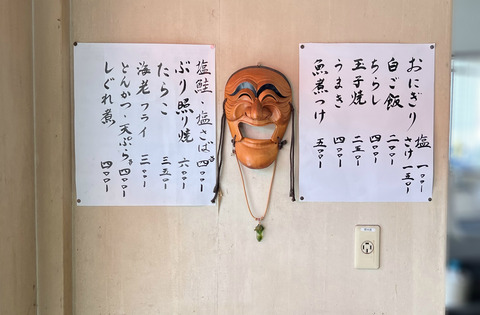 おにぎり 塩 一〇〇ー
さけ 一五〇ー
白ご飯 二〇〇ー
ちらし 四〇〇ー
玉子焼 二五〇ー
うまき 四〇〇ー
魚煮つけ 五〇〇ー
塩鮭・塩さば 各四〇〇ー
ぶり照り焼 六〇〇ー
たらこ 三五〇ー
海老フライ 三〇〇ー
とんかつ 天ぷら 各四〇〇ー
しぐれ煮 四〇〇ー